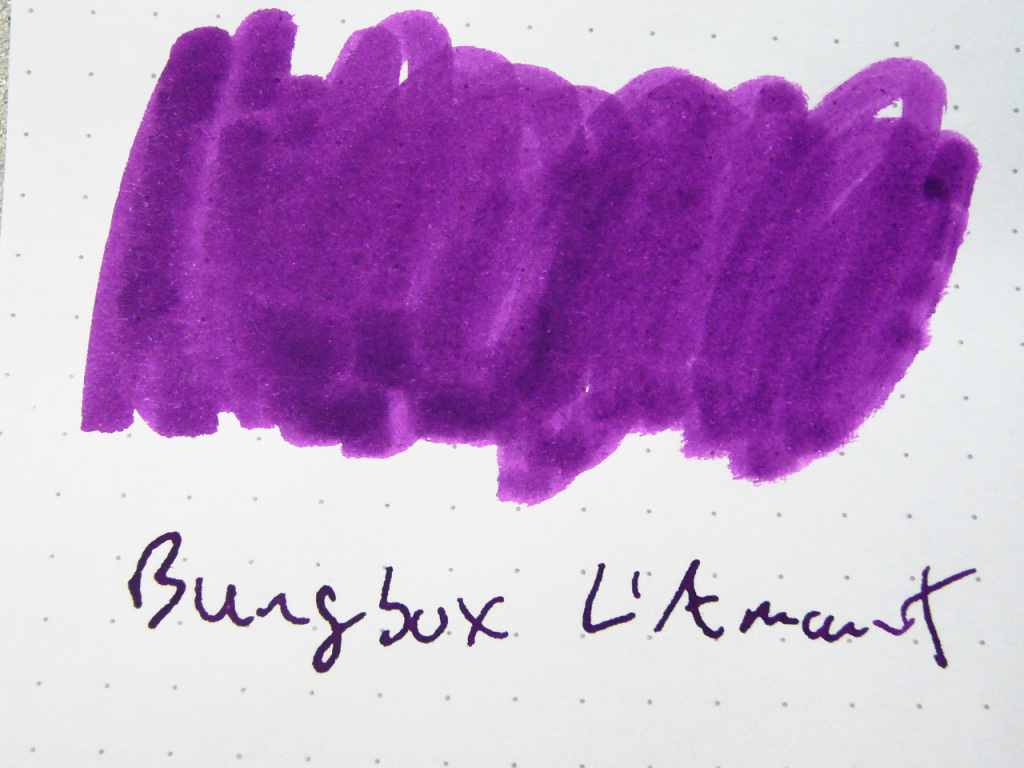 Bungbox L'Amant